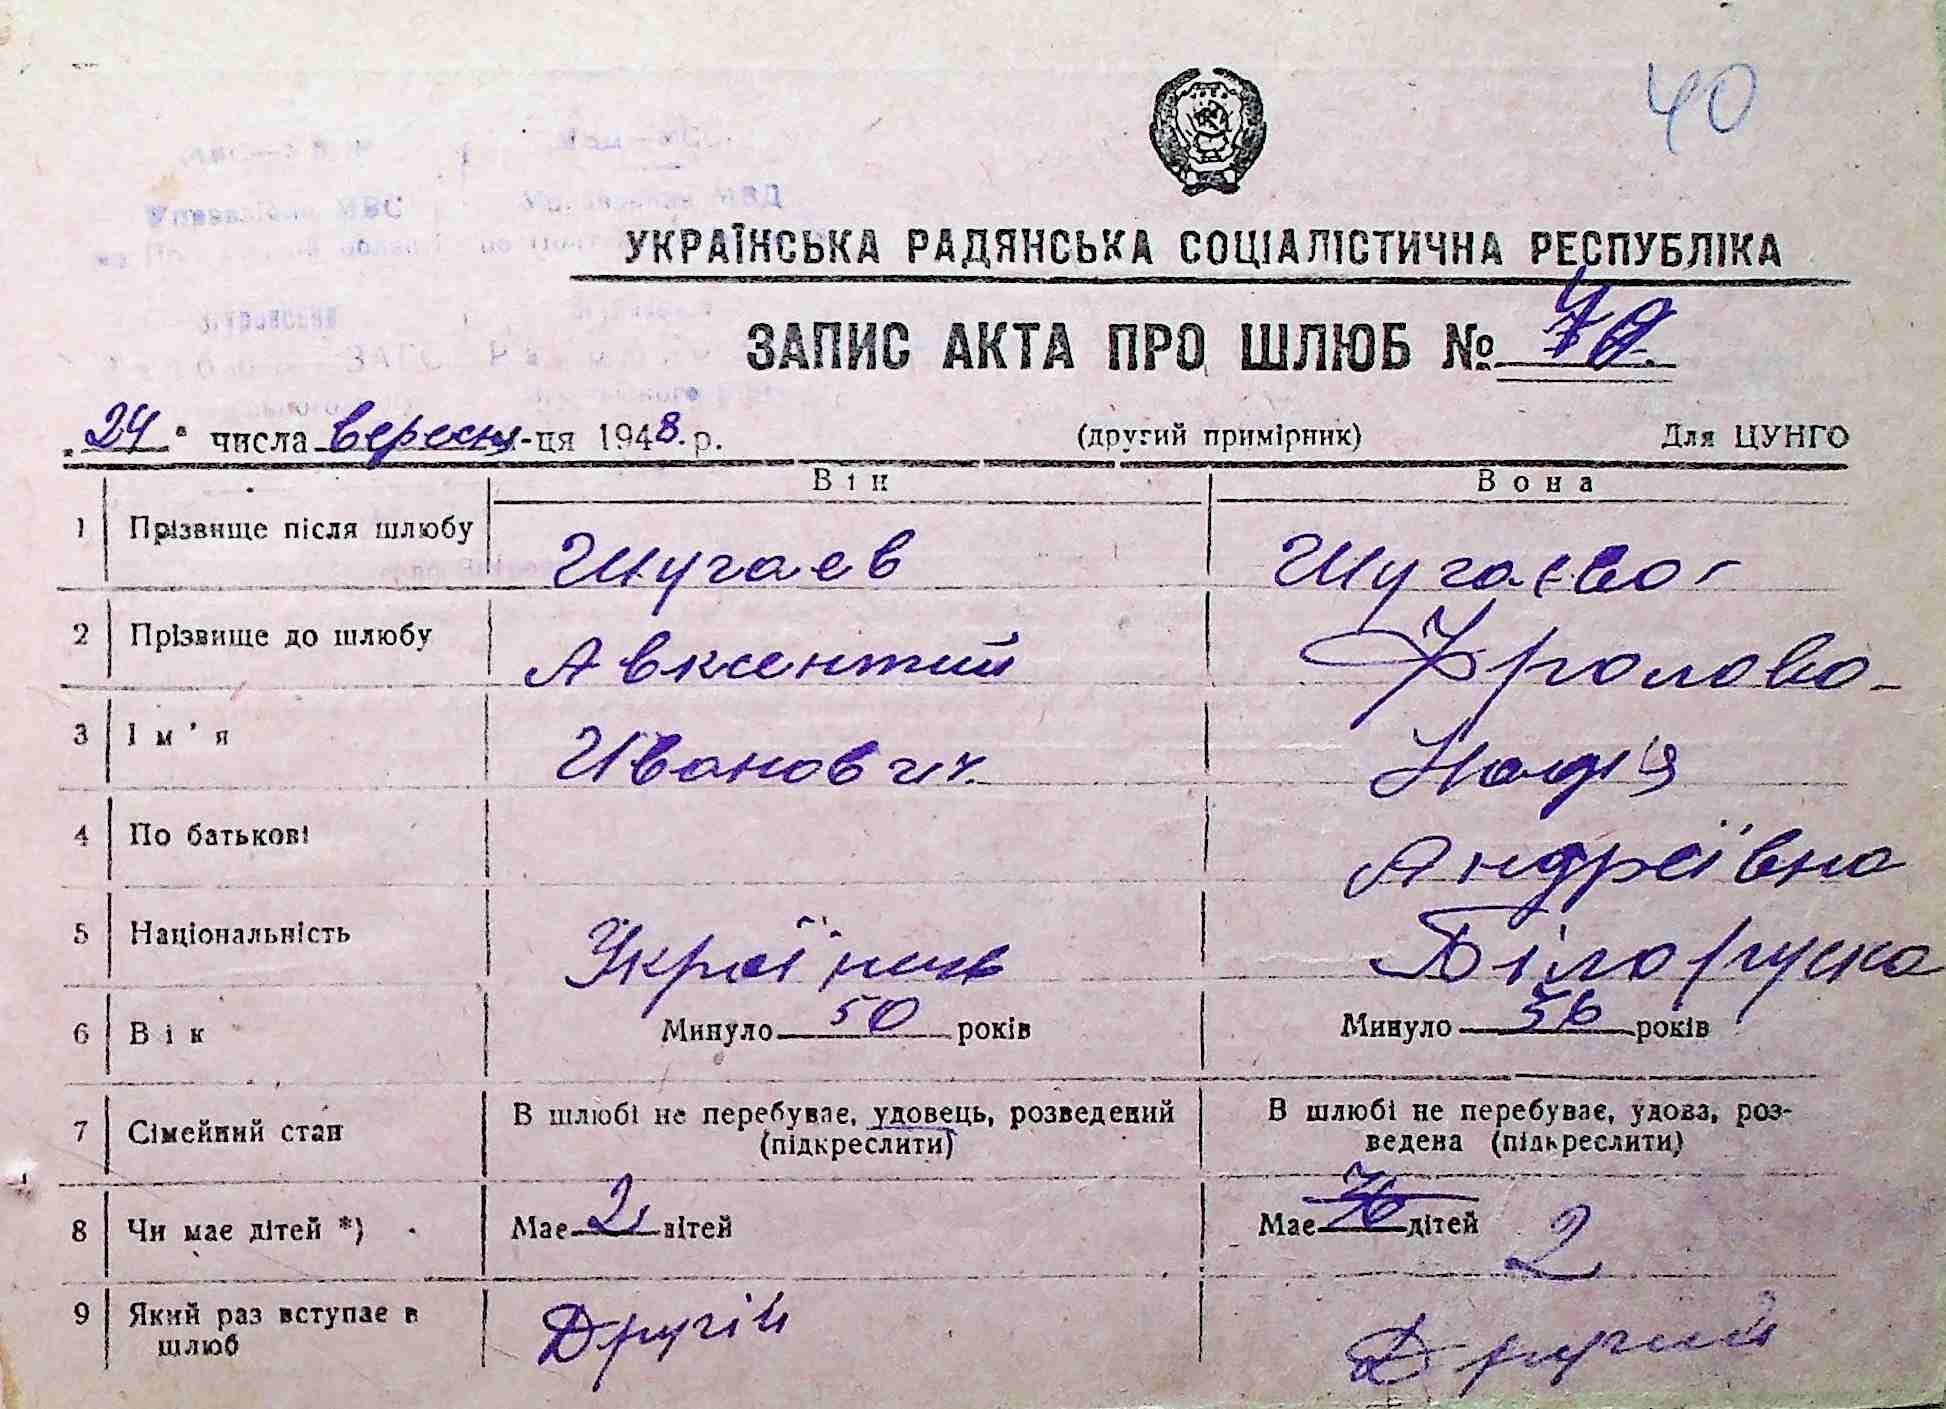 40
УКРАЇНСЬКА РАДЯНСЬКА СОЦІАЛІСТИЧНА РЕСПУБЛІКА
ЗАПИС АКТА ПРО ШЛЮБ №
„24“ числа вересня-ця 1948.р. (другий примірник) Для ЦУНГО
Він Вона
1 Прізвище після шлюбу Шугаев Шугаєва
2 Прізвище до шлюбу Авксентий Фролова
3 Ім'я Иванович Надія
4 По батькові Андреївна
5 Національність Українець Білоруска
6 Вік Минуло 50 років Минуло 36 років
7 Сімейний стан В шлюбі не перебуває, удовець, розведений В шлюбі не перебуває, удова, роз-
(підкреслити) ведена (підкреслити)
8 Чи має дітей *) Має 2 дітей Має 36 дітей 2
9 Який раз вступає в Другій Другий
шлюб